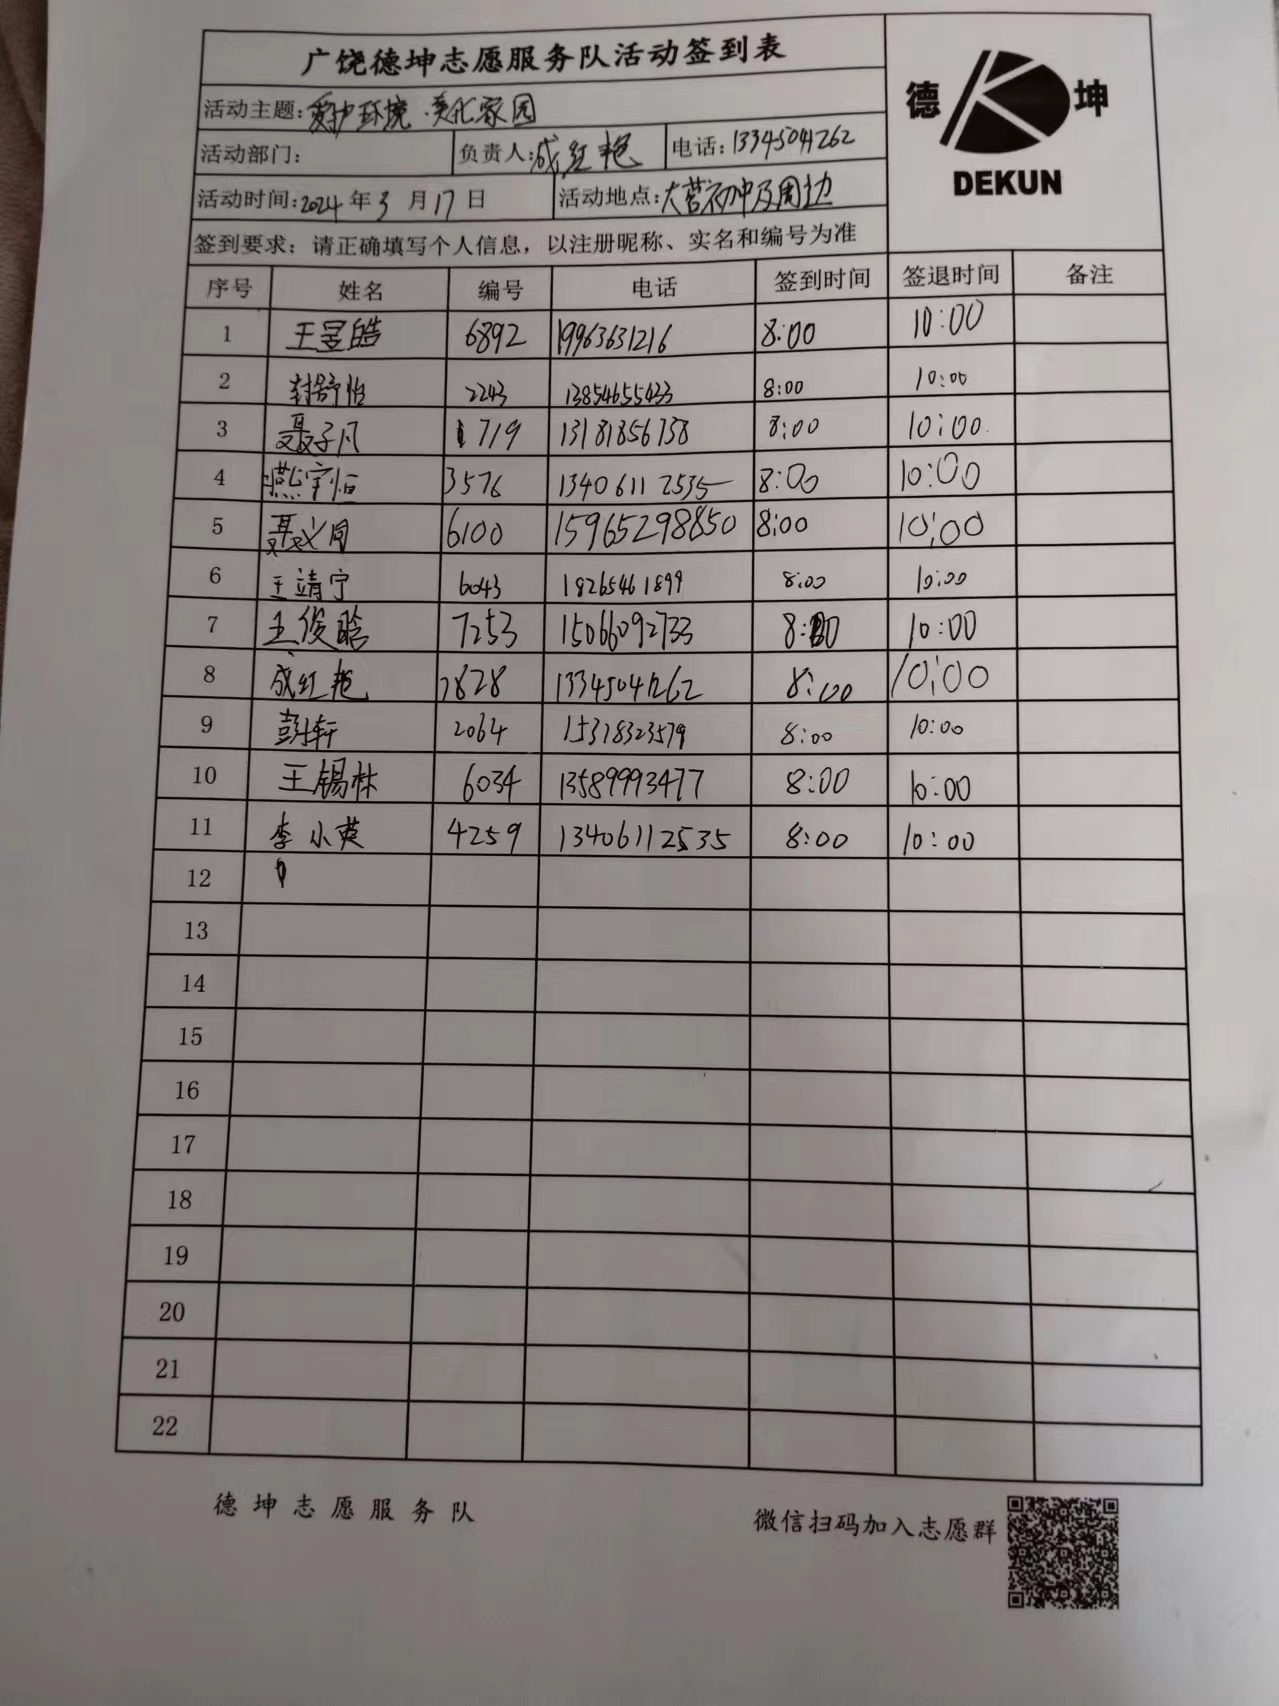 广饶德坤志愿服务队活动签到表
德 坤
DEKUN
活动主题:爱护环境·美化家园
活动部门: 负责人:成红艳 电话:13345041262
活动时间:2024年3月17日 活动地点:大营初中及周边
签到要求：请正确填写个人信息，以注册昵称、实名和编号为准
序号 姓名 编号 电话 签到时间 签退时间 备注
1 王昱皓 6892 19963631216 8:00 10:00
2 封舒怡 2243 13854655433 8:00 10:00
3 聂子凡 1719 13181856738 8:00 10:00
4 燕宇恒 3576 13406112535 8:00 10:00
5 聂义同 6100 15965298850 8:00 10:00
6 王靖宁 6043 18265461899 8:00 10:00
7 王俊皓 7253 15066092733 8:00 10:00
8 成红艳 7828 13345041262 8:00 10:00
9 彭轩 2064 15318323579 8:00 10:00
10 王锡林 6034 13589993477 8:00 10:00
11 李小英 4259 13406112535 8:00 10:00
12
13
14
15
16
17
18
19
20
21
22
德坤志愿服务队 微信扫码加入志愿群